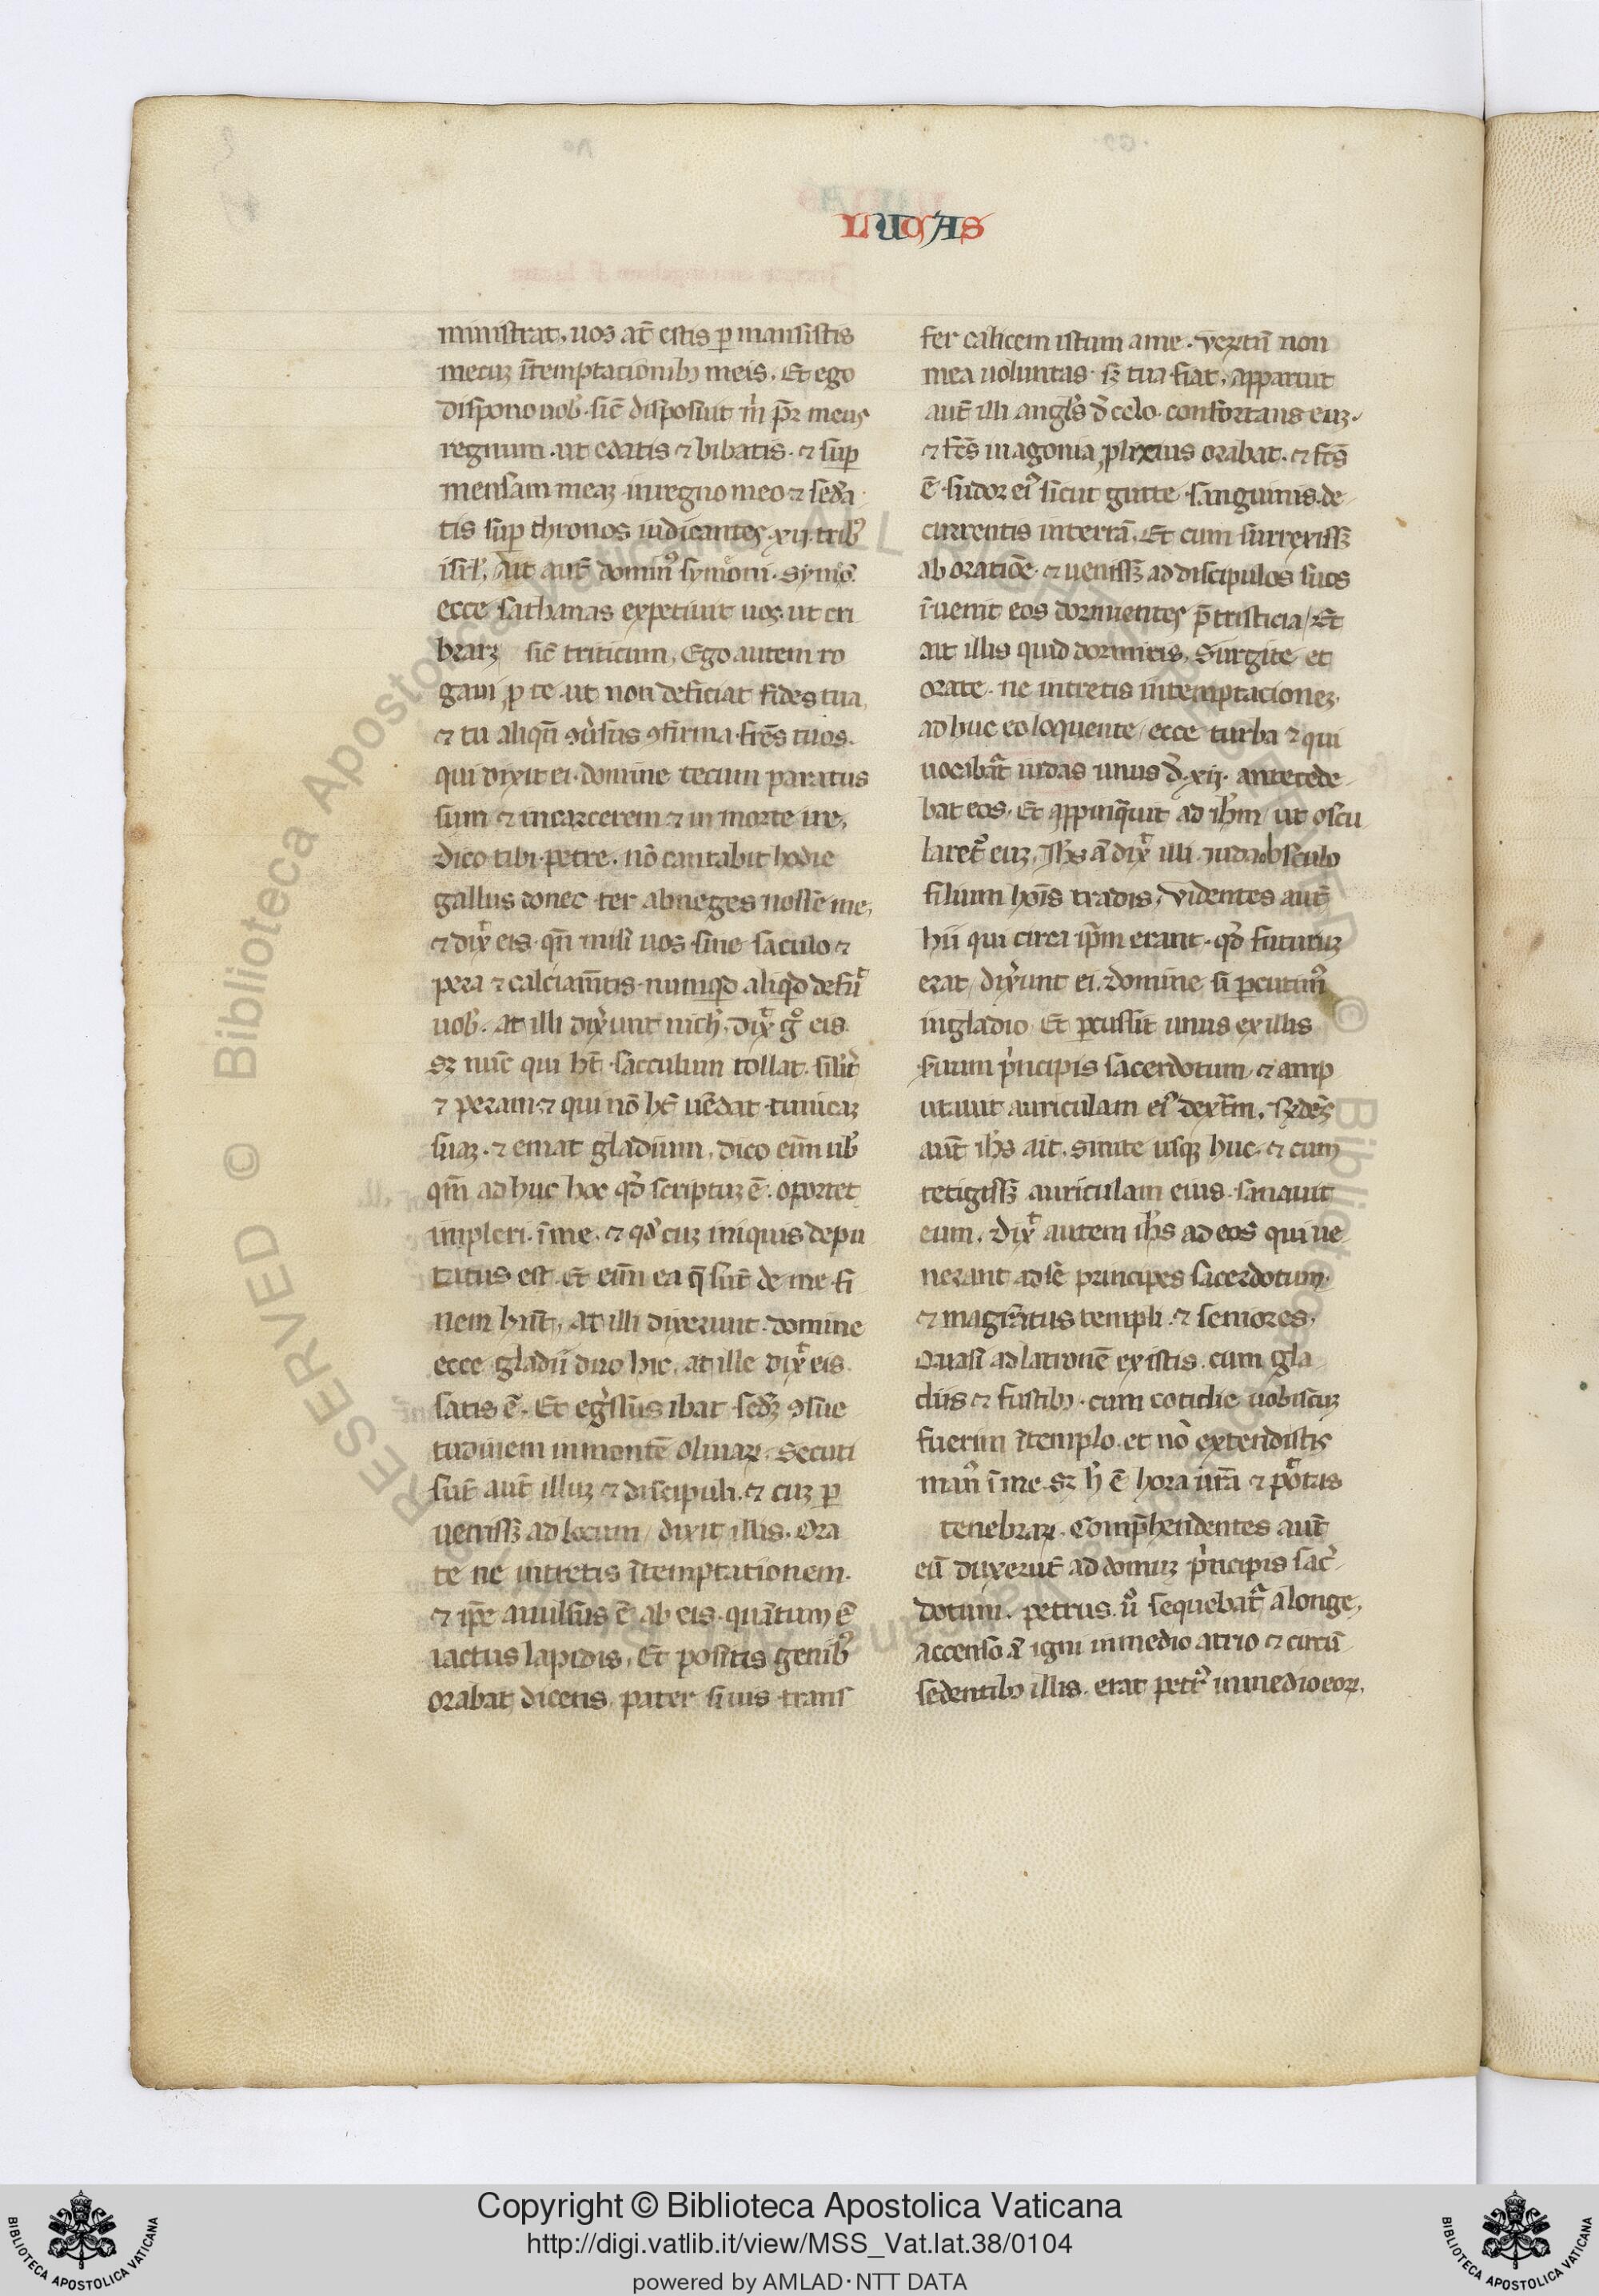 LUCAS
ministrat. uos at̄ estis ꝑ mansistis
mecuꝫ ītemptacionibꝰ meis. Et ego
dispono uob̕. sic̄ disposuit m̄ pr̄ meus
regnum. ut edatis ⁊ bibatis. ⁊ suꝑ
mensam meaꝫ inregno meo ⁊ sedea
tis suꝑ thronos iudicantes .xij. tribꝰ
isrl̕. Ait aut̄ dominꝰ symoni. symō.
ecce sathanas expetiuit uos. ut cri
braꝫ sic̄ triticum. Ego autem ro
gaui ꝓ te. ut non deficiat fides tua.
⁊ tu aliqn̄ ꝯuersus ꝯfirma fr̄es tuos.
qui dixit ei. domine tecum paratus
sum ⁊ incarcerem ⁊ in morte ire.
Dico tibi petre. nō cantabit hodie
gallus donec ter abneges nosse me.
⁊ dix̄ eis. qn̄ misi uos sine sacculo ⁊
pera ⁊ calciam̄tis. numqͥd aliqͥd defuͥ
uob̕. at illi dix̄unt nich̕. dix̄ gͦ eis.
sꝫ nūc qui ht̄ sacculum tollat. silit̕
⁊ peram ⁊ qui nō ht̄ uēdat tunicaꝫ
suaꝫ. ⁊ emat gladium. dico eīm uob̕
qm̄ ad huc hoc qd̕ scriptuꝫ ē. oportet
impleri. ī me. ⁊ qd̕ cuꝫ iniquis depu
tatus est. Et eīm ea q̄ sūt de me fi
nem hn̄t. at illi dixerunt. domine
ecce gladii duo hic. at ille dix̄ eis.
satis ē. Et egr̄ssus ibat sed̕m ꝯsue
tudinem inmontē oliuaꝝ. Secuti
sūt aut̄ illuꝫ ⁊ discipuli. ⁊ cuꝫ ꝑ
uenissꝫ ad locum / dixit illis. Ora
te ne intretis ītemptationem.
⁊ ip̄e auulsus ē ab eis. quātum ē
iactus lapidis. Et positis genibꝰ
orabat dicens. pater si uis trans
fer calicem istum ame. veꝝtū non
mea uoluntas. sꝫ tua fiat. apparuit
aut̄ illi angl̕s d̕ celo. confortans euꝫ.
⁊ fc̄s inagonia ꝓlixius orabat. ⁊ fc̄s
ē sudor eiꝰ sicut gutte sanguinis. de
currentis interrā. Et cum surrexissꝫ
ab oratiōe. ⁊ uenissꝫ ad discipulos suos
īuenit eos dormientes p̄ tristicia / Et
ait illis quid dormitis. Surgite et
orate. ne intretis intemptacioneꝫ.
ad huc eo loquente / ecce turba ⁊ qui
uocabat̄ iudas unus d̕ .xij. antecede
bat eos. Et appinquit ad ih̄m ut oscu
laret̄ euꝫ. Ih̄s ā dix̄ illi. iuda obsculo
filium hoīs tradis. Videntes aut̄
hii qui circa ip̄m erant. qd̕ futuruꝫ
erat / dix̄unt ei. domine si ꝑcutimꝰ
ingladio. Et ꝑcussit unus ex illis
suum pͥncipis sacerdotum. ⁊ amp
utauit auriculam eiꝰ dext̄m. R̄ndēs
aut̄ ih̄s ait. sinite usqꝫ huc. ⁊ cum
tetigissꝫ auriculam eius. sanauit
eum. Dix̄ autem ih̄s ad eos qui ue
nerant adse principes sacerdotum.
⁊ magr̄atus templi. ⁊ seniores.
Quasi ad latronē existis. cum gla
diis ⁊ fustibꝰ. cum cotidie uobiscuꝫ
fuerim ītemplo. et nō extendistis
manꝰ ī me. sꝫ h̕ ē hora ur̄a ⁊ ptͣas
tenebraꝝ. Comp̄hendentes aut̄
eū duxerūt ad domuꝫ pͥncipis sac̕
dotum. petrus. uͦ sequebat̄ a longe.
accenso ā igni inmedio atrio ⁊ circū
sedentibꝰ illis. erat petrꝰ inmedio eoꝝ.
Copyright © Biblioteca Apostolica Vaticana
http://digi.vatlib.it/view/MSS_Vat.lat.38/0104
powered by AMLAD·NTT DATA
BIBLIOTECA APOSTOLICA VATICANA
BIBLIOTECA APOSTOLICA VATICANA